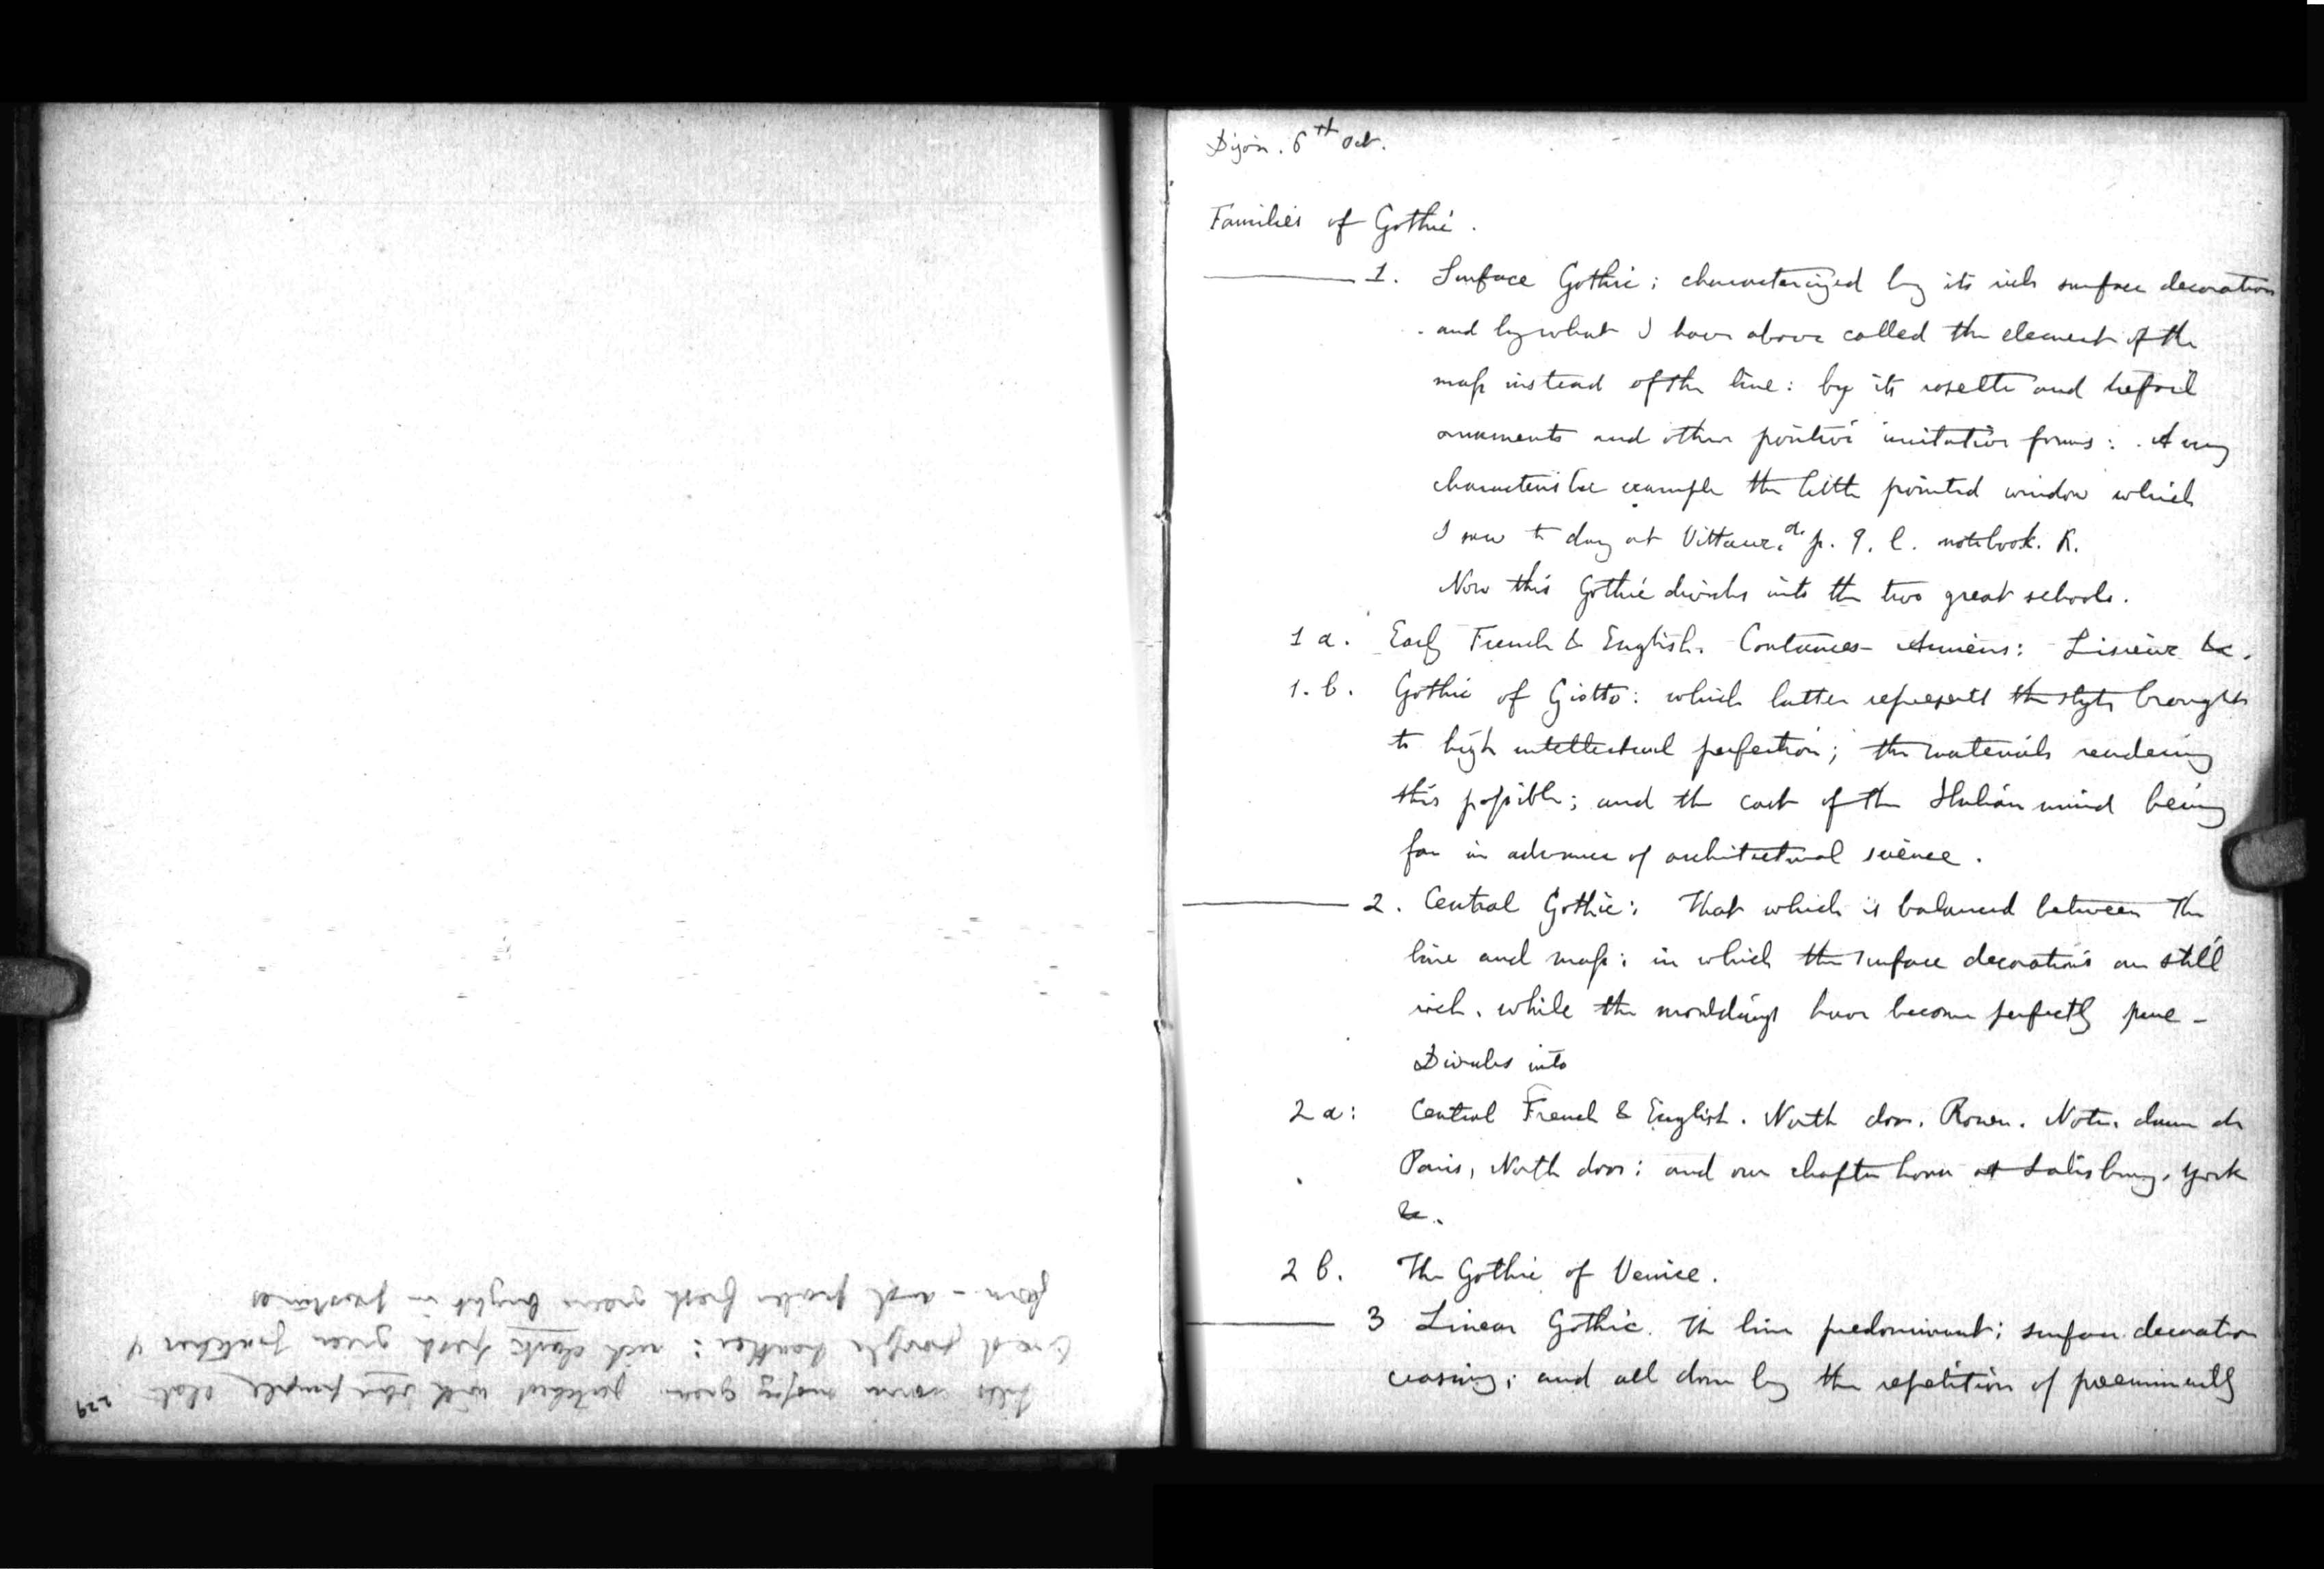 Dijon. 6th Oct.
Families of Gothic.
1. Surface Gothic; characterized by its rich surface decoration
and by what I have above called the element of the
mass instead of the line: by its rosette and trefoil
ornaments and other positive imitative forms: A very
characteristic example the little pointed window which
I saw to day at Vitteaux. p. 9. l. notebook. R.
Now this Gothic divides into the two great schools.
1 a. Early French & English. Coutances - Amiens: Lisieux &c.
1. b. Gothic of Giotto: which latter represents the style brought
to high intellectual perfection; the materials rendering
this possible; and the cast of the Italian mind being
far in advance of architectural science.
2. Central Gothic: That which is balanced between the
line and mass: in which the surface decorations are still
rich, while the mouldings have become perfectly pure -
Divides into
2 a: Central French & English. North door. Rouen. Notre dame de
Paris, North door: and our chapter house at Salisbury, York
&c.
2 b. The Gothic of Venice.
3 Linear Gothic. The line predominant; surface decoration
ceasing; and all done by the repetition of preeminently
229
hills warm mossy green patched with purple slate
and purple heather: and dark fresh green patches of
fern - and fresh green bright in